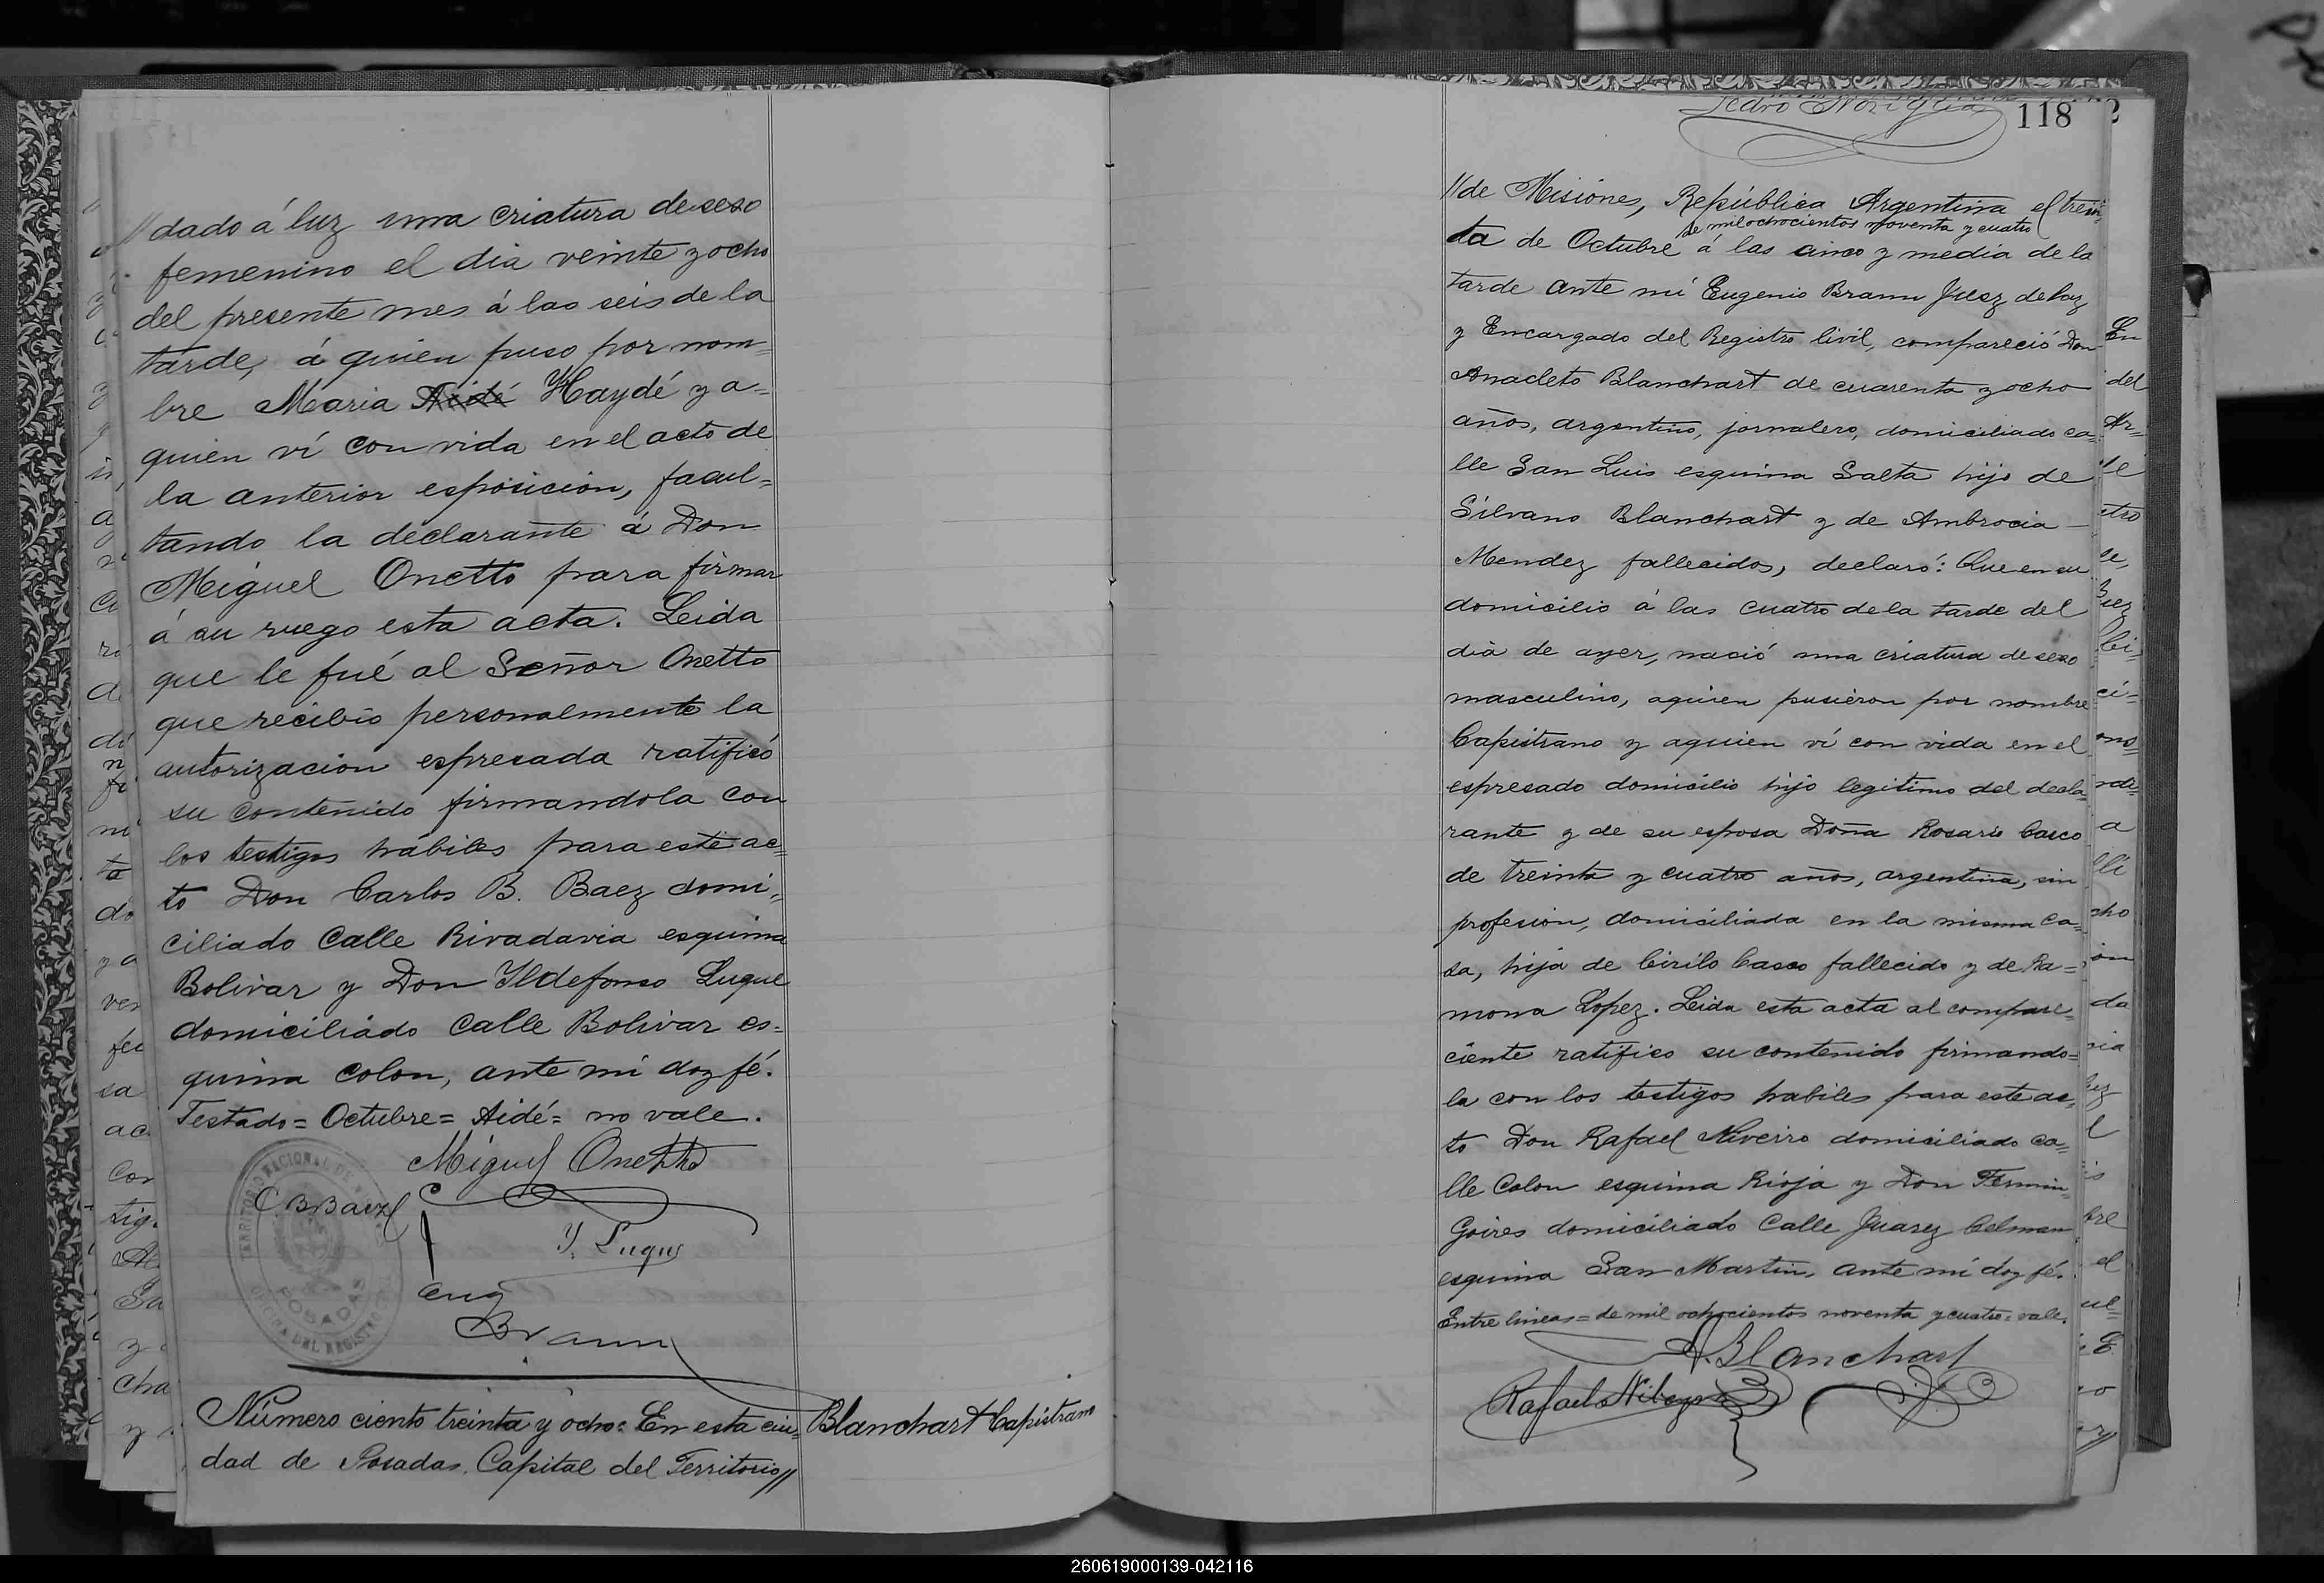 //dado á luz una criatura de sexo
femenino el dia veinte y ocho
del presente mes á las seis de la
tarde, á quien puso por nom=
bre Maria Aidé Haydé y a=
quien ví con vida en el acto de
la anterior esposicion, facul=
tando la declarante á Don
Miguel Onetto para firmar
á su ruego esta acta. Leida
que le fué al Señor Onetto
que recibió personalmente la
autorizacion espresada ratificó
su contenido firmandola con
los testigos hábiles para este ac=
to Don Carlos B. Baez domi=
ciliado Calle Rivadavia esquina
Bolivar y Don Yldefonso Luque
domiciliado Calle Bolivar es=
quina Colon, ante mí doy fé.
Testado = Octubre = Aidé = no vale.
Miguel Onetto
C B Baez
Y. Luque
Eug
Braun
TERRITORIO NACIONAL DE
POSADAS
OFICINA DEL REGISTRO
Número ciento treinta y ocho: En esta ciu=
dad de Posadas, Capital del Territorio//
Blanchart Capistrano
Pedro Noziglia
118
//de Misiones, República Argentina el trein=
de mil ochocientos noventa y cuatro
ta de Octubre á las cinco y media de la
tarde ante mí Eugenio Braun Juez de Paz
y Encargado del Registro Civil, compareció Don
Anacleto Blanchart de cuarenta y ocho
años, argentino, jornalero, domiciliado ca=
lle San Luis esquina Salta hijo de
Silvano Blanchart y de Ambrocia
Mendez fallecidos, declaró: Que en su
domicilio á las cuatro de la tarde del
dia de ayer, nació una criatura de sexo
masculino, aquien pusieron por nombre
Capistrano y aquien ví con vida en el
espresado domicilio hijo legitimo del decla=
rante y de su esposa Doña Rosario Casco
de treinta y cuatro años, argentina, sin
profesion, domiciliada en la misma ca=
sa, hija de Cirilo Casco fallecido y de Ra=
mona Lopez. Leida esta acta al compare=
ciente ratifico su contenido firmando=
la con los testigos habiles para este ac=
to Don Rafael Niveiro domiciliado ca=
lle Colon esquina Rioja y Don Fermin
Goires domiciliado Calle Juarez Celman
esquina San Martin, ante mí doy fé.
Entre lineas = de mil ochocientos noventa y cuatro = vale.
A. Blanchart
Rafael Nibeyro
260619000139-042116